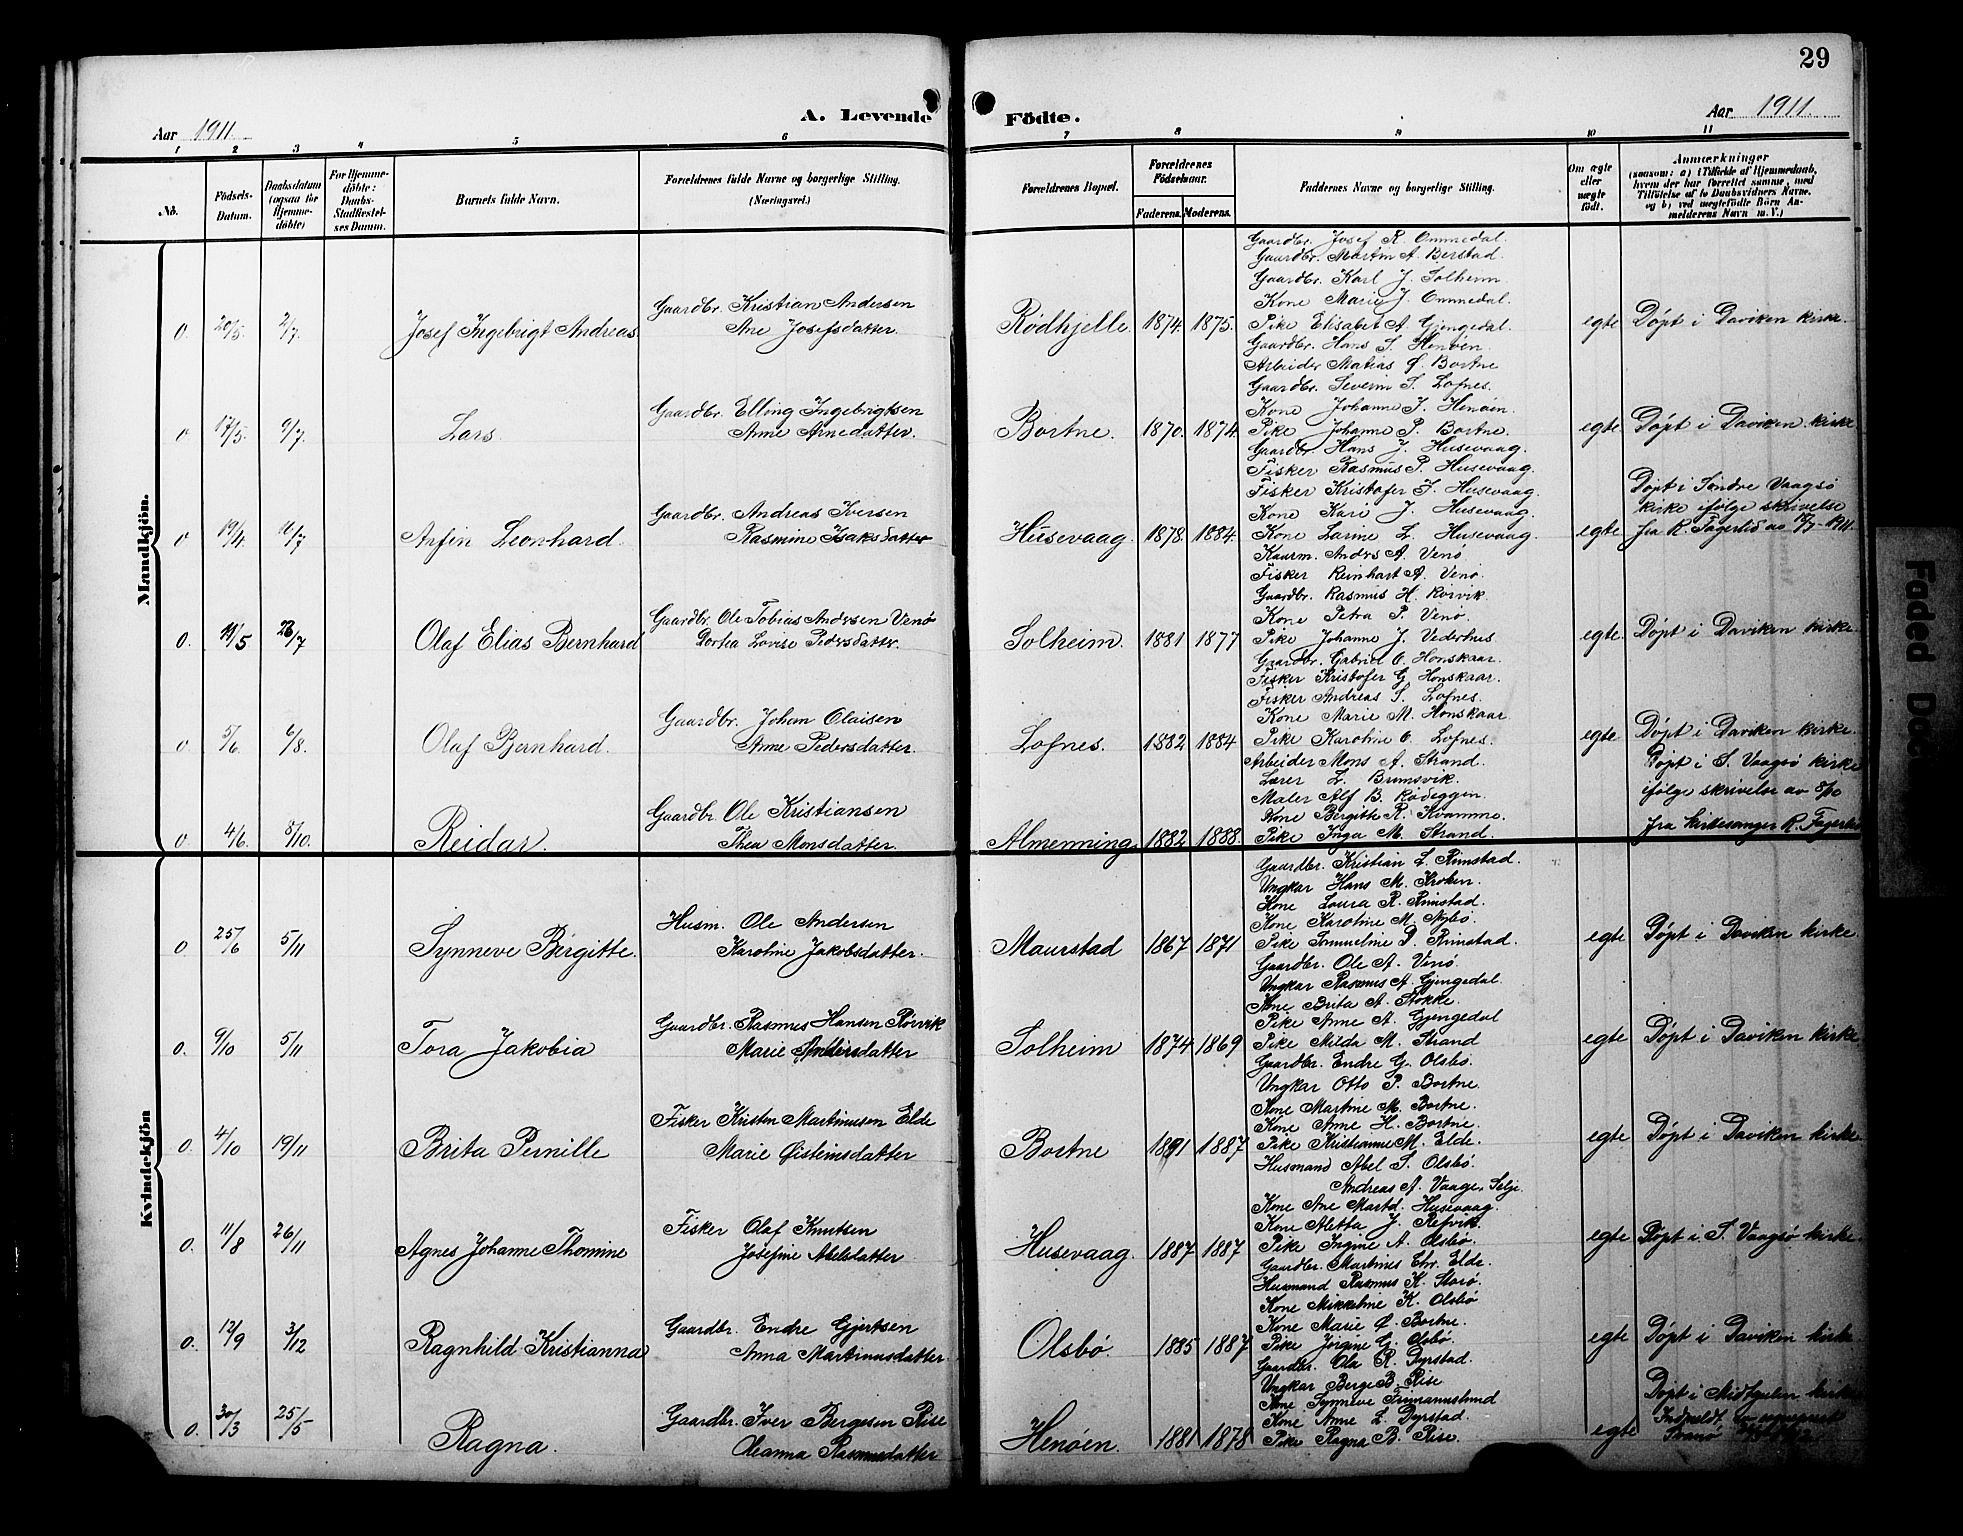 29
Aar 1911
A. Levende Födte.
Aar 1911
1 2 3 4 5 6 7 8 9 10 11
No.
Födsels-Datum.
Daabsdatum (ogsaa for Hjemme-döbte)
For Hjemme-döbte: Daabs-Stadfæstel-ses Datum.
Barnets fulde Navn.
Forældrenes fulde Navne og borgerlige Stilling. (Næringsvei.)
Forældrenes Bopæl.
Forældrenes Födselsaar.
Faderens. Moderens.
Faddernes Navne og borgerlige Stilling.
Om ægte eller uægte födt.
Anmærkninger
(saasom: a) i Tilfælde af Hjemmedaab,
hvem der har forrettet samme, med
Tilföielse af to Daabsvidners Navne,
og b) ved uægtefödte Börn An-
melderens Navn m. V.)
Mandkjön.
0. 20/5. 2/7. Josef Ingebrigt Andreas.
Gaardbr. Kristian Andersen
Ane Josefsdatter.
Rödhjelle. 1874. 1875.
Gaardbr. Josef R. Ommedal.
Gaardbr. Martin A. Berstad.
Gaardbr. Karl J. Solheim
Kone Marie J. Ommedal.
Pike Elisabet A. Gjengedal.
egte Döpt i Daviken kirke.
0 17/5. 9/7. Lars.
Gaardbr. Elling Ingebrigtsen
Anne Arnedatter.
Bortne. 1870. 1874.
Gaardbr. Hans S. Henöen.
Arbeider Matias Ø. Bortne
Gaardbr. Severin S. Lofnes.
Kone Johanne J. Henöen.
Pike Johanne P. Bortne.
egte Döpt i Daviken kirke
0 19/4. 16/7 Arfin Leonhard.
Gaardbr. Andreas Iversen
Rasmine Isaksdatter
Husevaag. 1878. 1884.
Gaardbr. Hans J. Husevaag.
Fisker Rasmus P. Husevaag.
Fisker Kristofer J. Husevaag.
Kone Kari J. Husevaag.
Kone Larine L. Husevaag.
egte
Döpt i Söndre Vaagsö
kirke ifölge skrivelse
fra R. Fagerlid av 17/7-1911.
0. 11/5 23/7 Olaf Elias Bernhard
Gaardbr. Ole Tobias Andersen Venö
Dortea Lovise Pedersdatter.
Solheim. 1881 1877
Kaarm. Andrs A. Venö
Fisker Reinhart A. Venö.
Gaardbr. Rasmus H. Rörvik.
Kone Petra P. Venö.
Pike Johanne J. Vederhus
egte. Döpt i Daviken kirke.
0 5/6. 6/8. Olaf Bernhard.
Gaardbr. Johan Olaisen
Anne Pedersdatter.
Lofnes. 1882 1884
Gaardbr. Gabriel O. Honskaar.
Fisker Kristofer G. Honskaar.
Fisker Andreas S. Lofnes.
Kone Marie M. Honskaar
Pike Karoline O. Lofnes.
egte Döpt i Daviken kirke.
0 4/6. 8/10. Reidar.
Gaardbr. Ole Kristiansen
Thea Monsdatter.
Almenning 1882 1888.
Arbeider Mons A. Strand.
Lærer L. Brunsvik.
Maler Alf B. Rödeggen
Kone Bergitte R. Kvamme.
Pike Inga M. Strand.
Döpt i S. Vaagsö kirke
ifölge skrivelse av 8/10
fra kirkesanger R. Fagerlid
Kvindekjön
0 25/6 5/11 Synneve Birgitte.
Husm. Ole Andersen
Karoline Jakobsdatter.
Maurstad 1867 1871
Gaardbr. Kristian L. Rimstad.
Ungkar Hans M. Kroken.
Kone Laura R. Rimstad.
Kone Karoline M. Nybö.
Pike Emmeline D. Rimstad.
egte Döpt i Daviken kirke
0. 9/10 5/11 Tora Jakobia
Gaardbr. Rasmus Hansen Rörvik
Marie Andersdatter
Solheim 1874 1869
Gaardbr. Ole A. Venö.
Ungkar Rasmus A. Gjengedal.
Kone Brita A. Stokke.
Pike Anne A. Gjengedal
Pike Milda M. Strand
egte Döpt i Daviken kirke.
0. 4/10 19/11 Brita Pernille
Fisker Kristen Martinusen Elde
Marie Øisteinsdatter
Bortne 1891 1887
Gaardbr. Endre G. Olsbö.
Ungkar Otto P. Bortne.
Kone Martine M. Bortne.
Kone Anne H. Bortne.
Pike Kristianne M. Elde.
egte Döpt i Daviken kirke.
0. 11/8 26/11 Agnes Johanne Thomine
Fisker Olaf Knutsen
Josefine Abelsdatter
Husevaag 1887 1887
Husmand Abel S. Olsbö.
Andreas A. Vaage, Selje.
Kone Ane Martd. Husevaag.
Kone Aletta J. Refvik.
Pike Ingine A. Olsbö.
egte Döpt i S. Vaagsö kirke.
0. 12/9 3/12 Ragnhild Kristianna
Gaardbr. Endre Gjertsen
Anna Martinusdatter.
Olsbö. 1885 1887
Gaardbr. Martinus Chr. Elde.
Husmand Rasmus K. Storö.
Kone Mikkeline K. Olsbö
Kone Marie Ø. Bortne
Pike Jörgine G. Olsbö.
egte Döpt i Daviken kirke.
0. 30/3 25/5 Ragna.
Gaardbr. Iver Bergesen Rise
Oleanna Rasmusdatter
Henöen. 1881 1878
Gaardbr. Ola R. Dyrstad.
Ungkar Berge B. Rise
Kone Synneve
Kone Anne L. Dyrstad.
Pike Ragna B. Rise.
egte
Döpt i Midtgulen kirke
Indmeldt av
Faded Doc